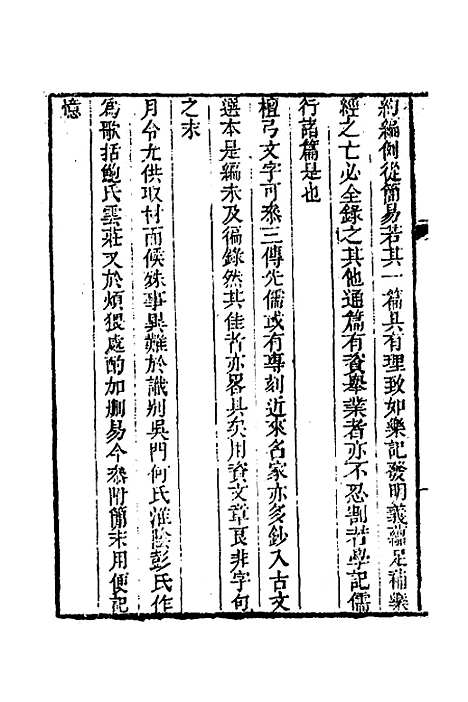 約編例從簡易若其一篇具有理致如樂記發明義蘊足補樂
經之亡必全錄之其他通篇有資舉業者亦不忍割若學記儒
行諸篇是也
檀弓文字可叅三傳先儒或有專刻近來名家亦多鈔入古文
選本是編未及徧錄然其佳者亦畧具矣用資文章良非字句
之末
月令尤供取材而候殊事異難於識別吳門何氏淮陰彭氏作
為歌括鮑氏雲莊又於煩猥處酌加刪易今叅附簡末用便記
憶